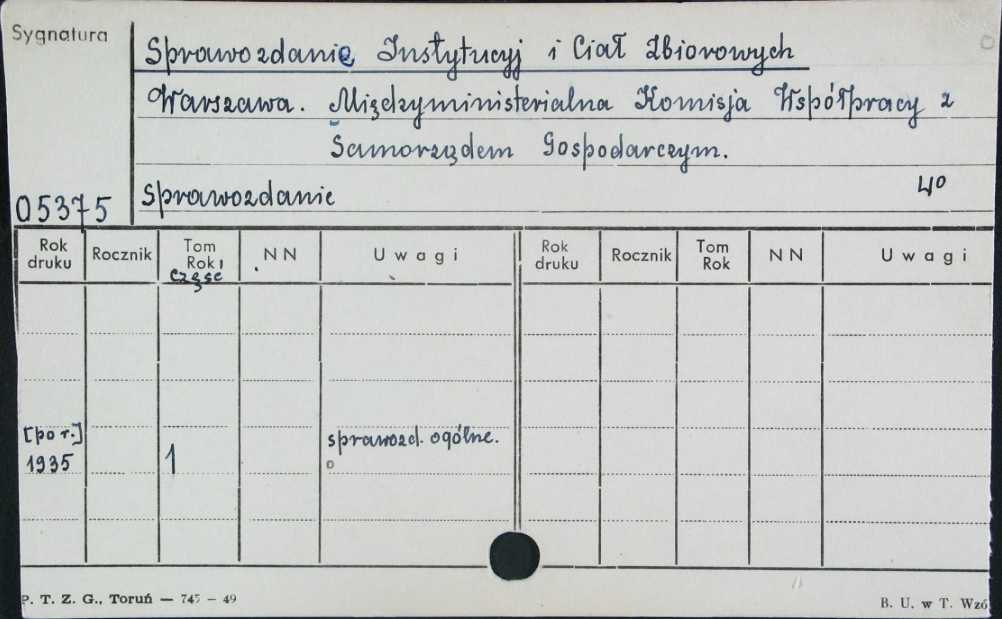 Sygnatura
Sprawozdanie Instytucyj i Ciał Zbiorowych
Warszawa. Międzyministerialna Komisja Współpracy z
Samorządem Gospodarczym.
05375
Sprawozdanie 4º
Rok druku Rocznik Tom Rok, część NN Uwagi Rok druku Rocznik Tom Rok NN Uwagi
[po r.]
1935 1 sprawozd. ogólne.
P. T. Z. G., Toruń — 745 – 49
B. U. w T. Wzó